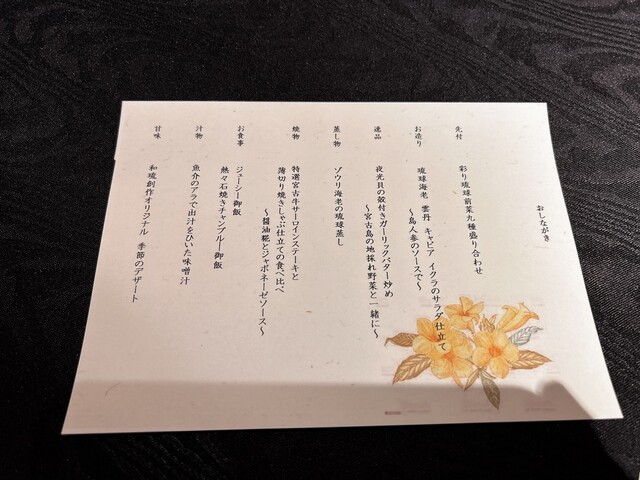 おしながき
先付
彩り琉球前菜九種盛り合わせ
お造り
琉球海老 雲丹 キャビア イクラのサラダ仕立て
～島人参のソースで～
逸品
夜光貝の殻付きガーリックバター炒め
～宮古島の地採れ野菜と一緒に～
蒸し物
ゾウリ海老の琉球蒸し
焼物
特選宮古牛サーロインステーキと
薄切り焼きしゃぶ仕立ての食べ比べ
～醤油糀とジャポネーゼソース～
お食事
ジューシー御飯
熱々石焼きチャンプルー御飯
汁物
魚介のアラで出汁をひいた味噌汁
甘味
和琉創作オリジナル 季節のデザート